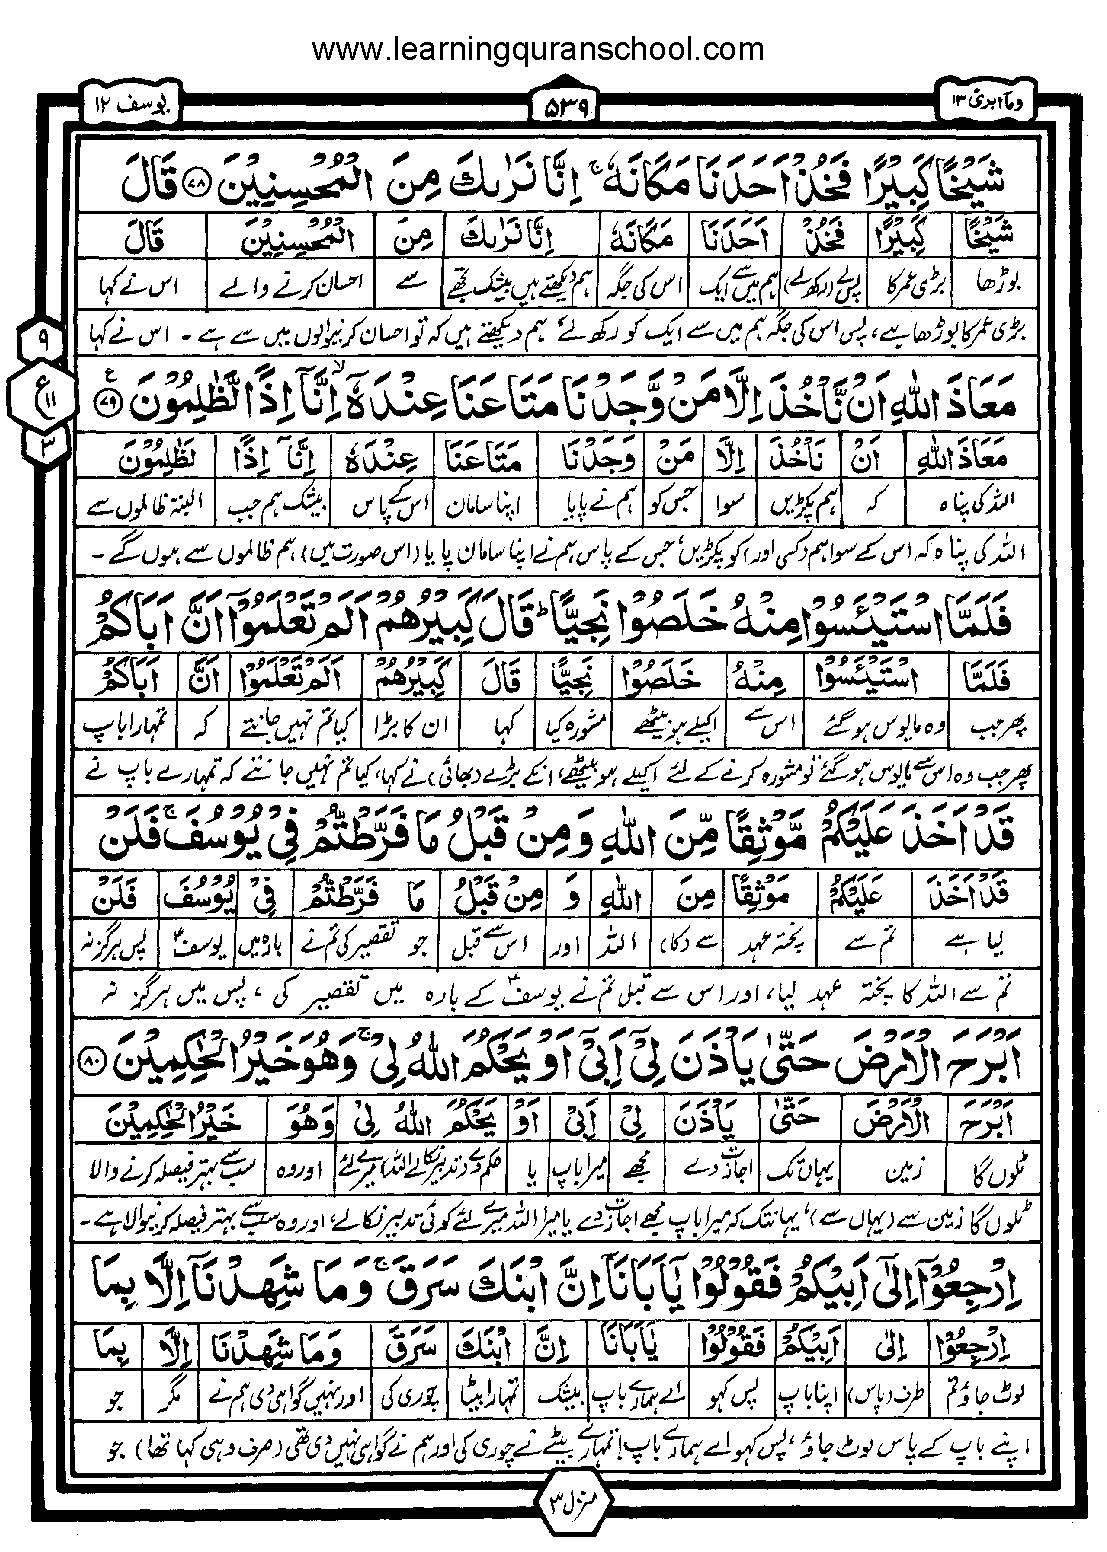 www.learningquranschool.com
وما ابرئ ۱۳ ۵۳۹ یوسف ۱۲
شَیْخًا كَبِیْرًا فَخُذْ اَحَدَنَا مَكَانَهٗ ۚ اِنَّا نَرٰىكَ مِنَ الْمُحْسِنِیْنَ ﴿۷۸﴾ قَالَ
شَیْخًا كَبِیْرًا فَخُذْ اَحَدَنَا مَكَانَهٗ اِنَّا نَرٰىكَ مِنَ الْمُحْسِنِیْنَ قَالَ
بوڑھا بڑی عمر کا پس لے (رکھ لے) ہم میں سے ایک اس کی جگہ ہم دیکھتے ہیں بیشک تجھے سے احسان کرنے والے اس نے کہا
بڑی عمر کا بوڑھا ہے، پس اس کی جگہ ہم میں سے ایک کو رکھ لے ہم دیکھتے ہیں کہ تو احسان کرنیوالوں میں سے ہے ۔ اس نے کہا
۹
ع ۱۱
۳
مَعَاذَ اللّٰهِ اَنْ نَّاْخُذَ اِلَّا مَنْ وَّجَدْنَا مَتَاعَنَا عِنْدَهٗۤ ۙ اِنَّاۤ اِذًا لَّظٰلِمُوْنَ ﴿۷۹﴾ ع
مَعَاذَ اللّٰهِ اَنْ نَاْخُذَ اِلَّا مَنْ وَجَدْنَا مَتَاعَنَا عِنْدَهٗ اِنَّاۤ اِذًا لَظٰلِمُوْنَ
اللہ کی پناہ کہ ہم پکڑیں سوا جس کو ہم نے پایا اپنا سامان اس کے پاس بیشک ہم جب البتہ ظالموں سے
اللہ کی پناہ کہ اس کے سوا ہم (کسی اور) کو پکڑیں جس کے پاس ہم نے اپنا سامان پایا (اس صورت میں) ہم ظالموں سے ہوں گے ۔
فَلَمَّا اسْتَیْـَٔسُوْا مِنْهُ خَلَصُوْا نَجِیًّا ؕ قَالَ كَبِیْرُهُمْ اَلَمْ تَعْلَمُوْۤا اَنَّ اَبَاكُمْ
فَلَمَّا اسْتَیْـَٔسُوْا مِنْهُ خَلَصُوْا نَجِیًّا قَالَ كَبِیْرُهُمْ اَلَمْ تَعْلَمُوْۤا اَنَّ اَبَاكُمْ
پھر جب وہ مایوس ہو گئے اس سے اکیلے ہو بیٹھے مشورہ کیا کہا ان کا بڑا کیا تم نہیں جانتے کہ تمہارا باپ
پھر جب وہ اس سے مایوس ہو گئے تو مشورہ کرنے کے لئے اکیلے ہو بیٹھے، انکے بڑے (بھائی) نے کہا، کیا تم نہیں جانتے کہ تمہارے باپ نے
قَدْ اَخَذَ عَلَیْكُمْ مَّوْثِقًا مِّنَ اللّٰهِ وَ مِنْ قَبْلُ مَا فَرَّطْتُّمْ فِیْ یُوْسُفَ ۚ فَلَنْ
قَدْ اَخَذَ عَلَیْكُمْ مَوْثِقًا مِنَ اللّٰهِ وَ مِنْ قَبْلُ مَا فَرَّطْتُّمْ فِیْ یُوْسُفَ فَلَنْ
لیا ہے تم سے پختہ عہد سے (کا) اللہ اور اس سے قبل جو تقصیر کی تم نے بارہ میں یوسفؑ پس ہرگز نہ
تم سے اللہ کا پختہ عہد لیا، اور اس سے قبل تم نے یوسفؑ کے بارہ میں تقصیر کی، پس میں ہرگز نہ
اَبْرَحَ الْاَرْضَ حَتّٰى یَاْذَنَ لِیْۤ اَبِیْۤ اَوْ یَحْكُمَ اللّٰهُ لِیْ ۚ وَهُوَ خَیْرُ الْحٰكِمِیْنَ ﴿۸۰﴾
اَبْرَحَ الْاَرْضَ حَتّٰى یَاْذَنَ لِیْۤ اَبِیْۤ اَوْ یَحْكُمَ اللّٰهُ لِیْ وَهُوَ خَیْرُ الْحٰكِمِیْنَ
ٹلوں گا زمین یہاں تک اجازت دے مجھے میرا باپ یا حکم دے (تدبیر نکالے) اللہ میرے لئے اور وہ سب سے بہتر فیصلہ کرنے والا
ٹلوں گا زمین سے (یہاں سے)، یہانتک کہ میرا باپ مجھے اجازت دے یا میرا اللہ میرے لئے کوئی تدبیر نکالے، اور وہ سب سے بہتر فیصلہ کرنیوالا ہے ۔
اِرْجِعُوْۤا اِلٰۤى اَبِیْكُمْ فَقُوْلُوْا یٰۤاَبَانَاۤ اِنَّ ابْنَكَ سَرَقَ ۚ وَمَا شَهِدْنَاۤ اِلَّا بِمَا
اِرْجِعُوْۤا اِلٰى اَبِیْكُمْ فَقُوْلُوْا یٰۤاَبَانَاۤ اِنَّ ابْنَكَ سَرَقَ وَمَا شَهِدْنَا اِلَّا بِمَا
لوٹ جاؤ تم طرف (پاس) اپنا باپ پس کہو اے ہمارے باپ بیشک تمہارا بیٹا چوری کی اور نہیں گواہی دی ہم نے مگر جو
اپنے باپ کے پاس لوٹ جاؤ، پس کہو اے ہمارے باپ! تمہارے بیٹے نے چوری کی اور ہم نے گواہی نہیں دی تھی (صرف وہی کہا تھا) جو
منزل ۳